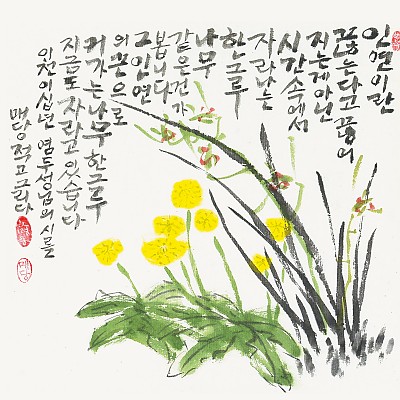 인연이란
끊는다고 끊어
지는게 아닌
시간 속에서
자라나는
한그루
나무
같은건가
봅니다
그 인연
의 끈으로
커가는 나무 한그루
지금도 자라고 있습니다
이천이십년 염두성님의 시를
매당 적고 그리다